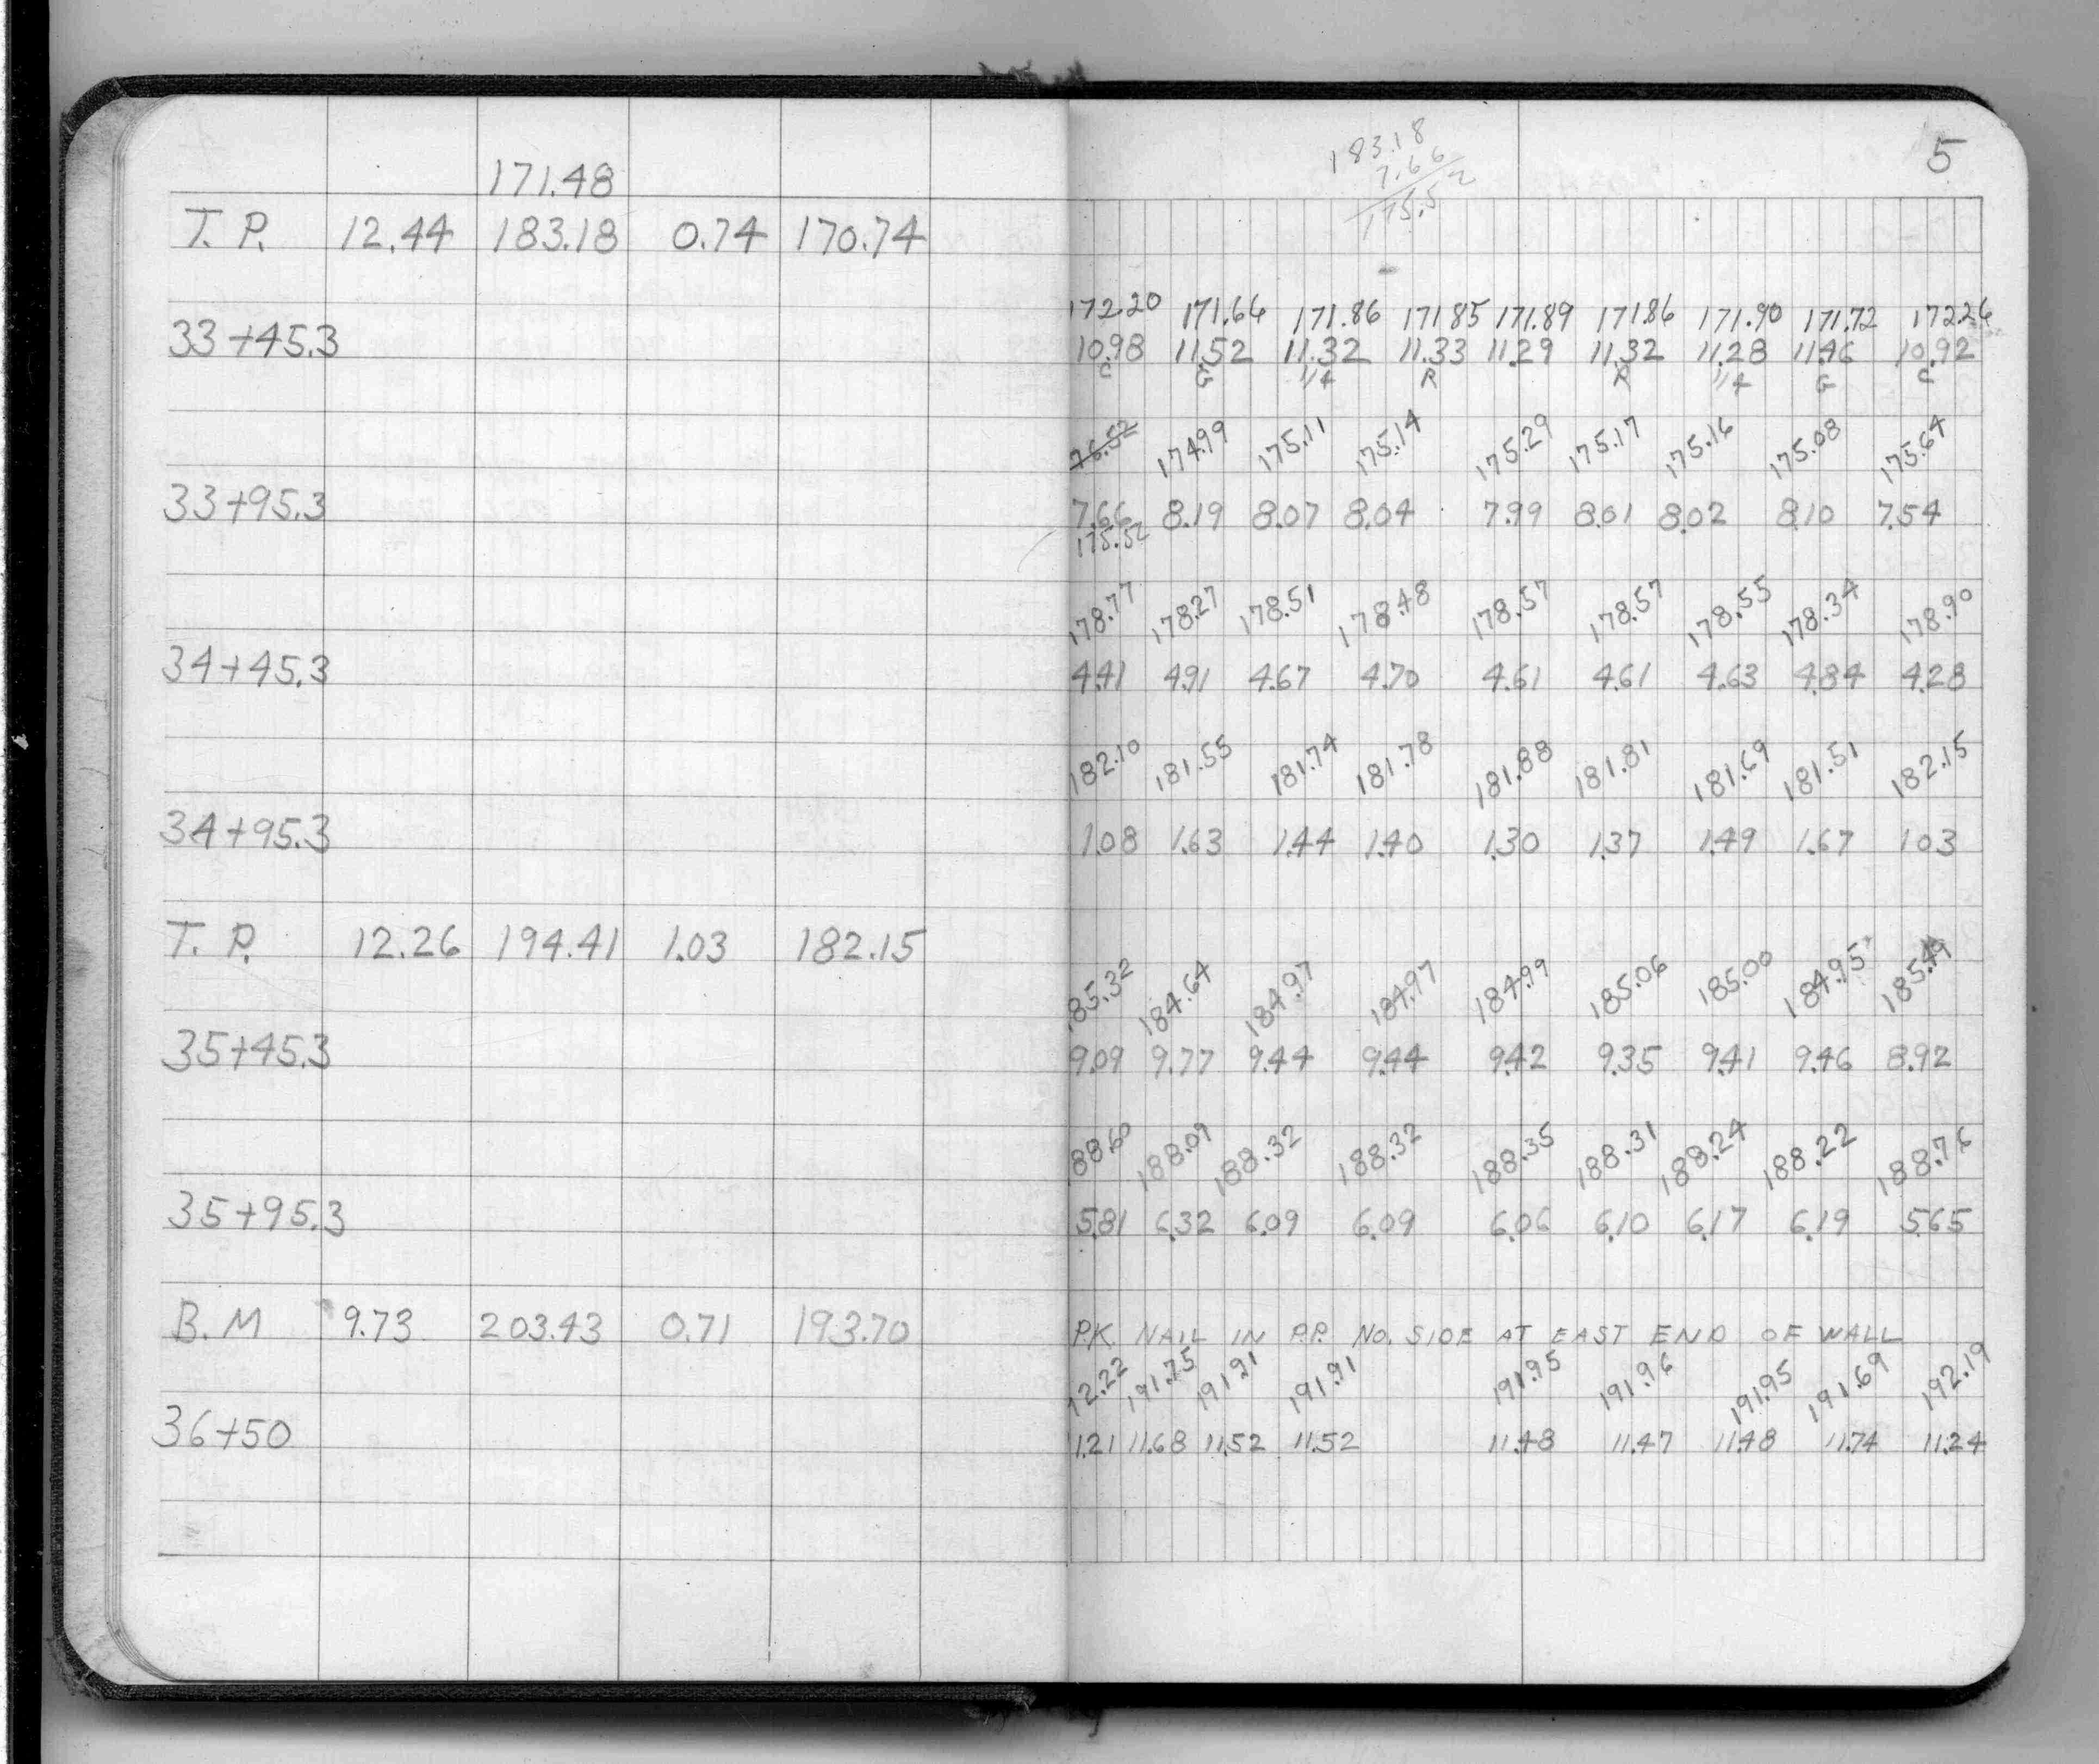 171.48
T. P. 12.44 183.18 0.74 170.74
183.18
7.66
175.52
5
172.20 171.66 171.86 171.85 171.89 171.86 171.90 171.72 172.26
33+45.3 10.98 11.52 11.32 11.33 11.29 11.32 11.28 11.46 10.92
C G 1/4 R R 1/4 G C
76.52 174.99 175.11 175.14 175.29 175.17 175.16 175.08 175.64
33+95.3 7.66 8.19 8.07 8.04 7.99 8.01 8.02 8.10 7.54
175.52
178.77 178.27 178.51 178.48 178.57 178.57 178.55 178.34 178.90
34+45.3 4.41 4.91 4.67 4.70 4.61 4.61 4.63 4.84 4.28
182.10 181.55 181.74 181.78 181.88 181.81 181.69 181.51 182.15
34+95.3 1.08 1.63 1.44 1.40 1.30 1.37 1.49 1.67 1.03
T. P. 12.26 194.41 1.03 182.15
185.32 184.64 184.97 184.97 184.99 185.06 185.00 184.95 185.49
35+45.3 9.09 9.77 9.44 9.44 9.42 9.35 9.41 9.46 8.92
88.60 188.09 188.32 188.32 188.35 188.31 188.24 188.22 188.76
35+95.3 5.81 6.32 6.09 6.09 6.06 6.10 6.17 6.19 5.65
B. M 9.73 203.43 0.71 193.70 P.K. NAIL IN P.P. NO. SIDE AT EAST END OF WALL
12.22 191.75 191.91 191.91 191.95 191.96 191.95 191.69 192.19
36+50 1.21 11.68 11.52 11.52 11.48 11.47 11.48 11.74 11.24